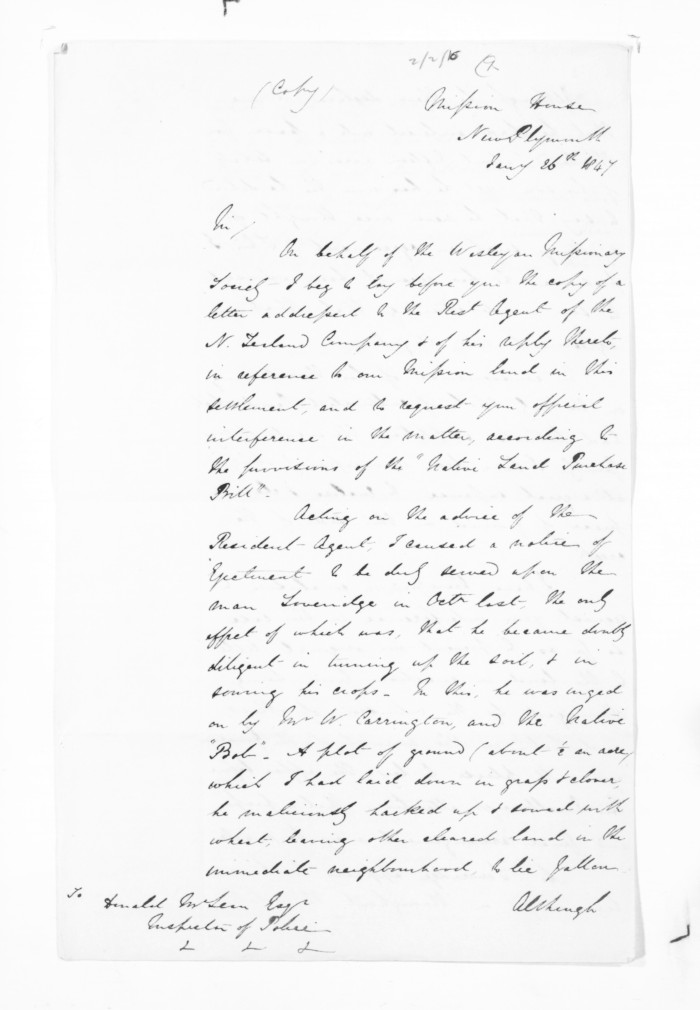 2/2/16
(Copy)
Mission House
New Plymouth
Jany 26th 1847
Sir/
On behalf of the Wesleyan Missionary
Society I beg to lay before you the copy of a
letter addressed to the Rest Agent of the
N. Zealand Company & of his reply thereto,
in reference to our Mission land in this
settlement, and to request your official
interference in the matter, according to
the provisions of the "Native Land Purchase
Bill"-
Acting on the advice of the
Resident Agent, I caused a notice of
Ejectment to be duly served upon the
man Loveridge in Octr last, the only
effect of which was, that he became doubly
diligent in turning up the soil, & in
sowing his crops- In this, he was urged
on by Mr W. Carrington, and the Native
"Bob"- A plot of ground (about ½ an acre)
which I had laid down in grass & clover,
he maliciously hacked up & sowed with
wheat, leaving other cleared land in the
immediate neighbourhood, to lie fallow
Although
To
Donald McLean Esqr
Inspector of Police